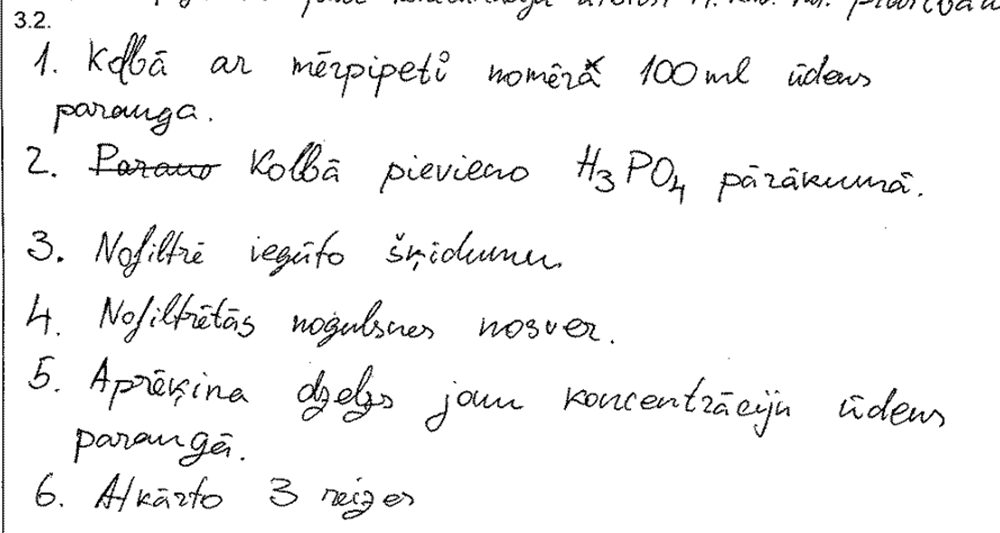 3.2.
1. Kolbā ar mērpipeti nomēra 100 ml ūdens
parauga.
2. Kolbā pievieno H₃PO₄ pārākumā.
3. Nofiltrē iegūto šķidumu
4. Nofiltrētās nogulsnes nosver.
5. Aprēķina dzelzs jonu koncentrāciju ūdens
paraugā.
6. Atkārto 3 reizes